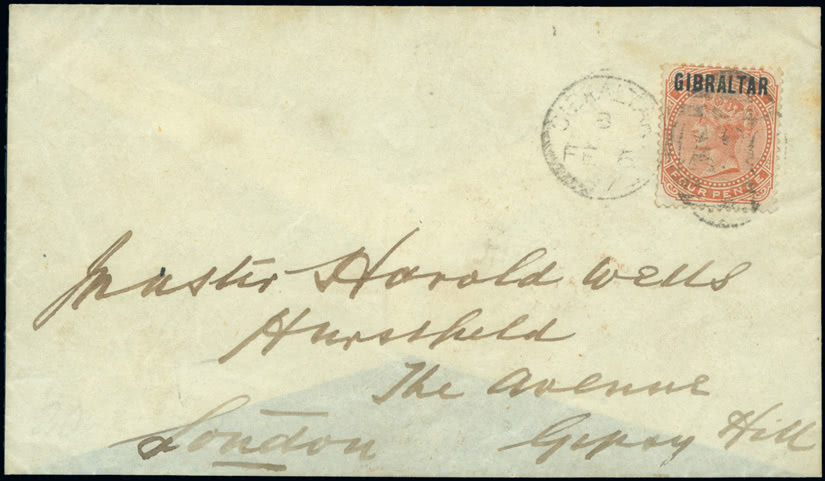 GIBRALTAR
FOUR PENCE
GIBRALTAR
B
FE 5
Master Harold Wells
Hurstfield
The Avenue
London Gipsy Hill